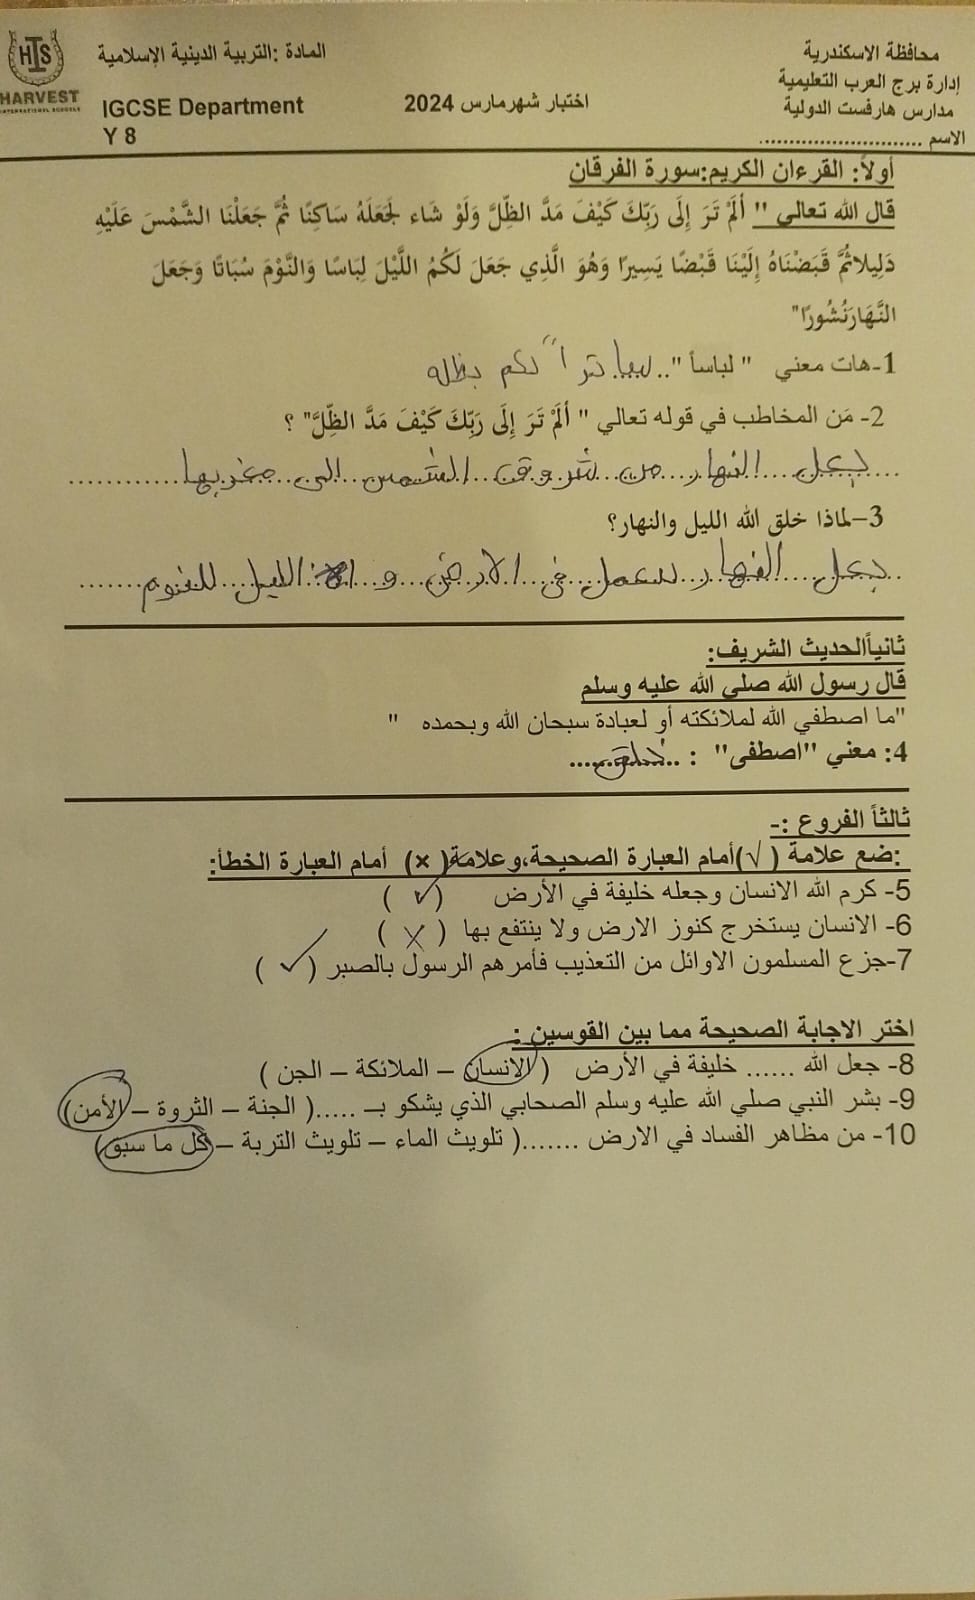 HIS
HARVEST
INTERNATIONAL SCHOOLS
محافظة الاسكندرية
إدارة برج العرب التعليمية
مدارس هارفست الدولية
الاسم ..........................
اختبار شهرمارس 2024
المادة :التربية الدينية الإسلامية
IGCSE Department
Y 8
أولاً: القرءان الكريم:سورة الفرقان
قال الله تعالى " أَلَمْ تَرَ إِلَى رَبِّكَ كَيْفَ مَدَّ الظِّلَّ وَلَوْ شَاء لَجَعَلَهُ سَاكِنًا ثُمَّ جَعَلْنَا الشَّمْسَ عَلَيْهِ
دَلِيلاثُمَّ قَبَضْنَاهُ إِلَيْنَا قَبْضًا يَسِيرًا وَهُوَ الَّذِي جَعَلَ لَكُمُ اللَّيْلَ لِبَاسًا وَالنَّوْمَ سُبَاتًا وَجَعَلَ
النَّهَارَنُشُورًا"
1-هات معني " لباساً ".. ساترا لكم بظله
2- مَن المخاطب في قوله تعالي " أَلَمْ تَرَ إِلَى رَبِّكَ كَيْفَ مَدَّ الظِّلَّ" ؟
يجعل النهار من شروق الشمس الى مغربها
3-لماذا خلق الله الليل والنهار؟
يجعل النهار للعمل في الارض و الليل للنوم
ثانياًالحديث الشريف:
قال رسول الله صلي الله عليه وسلم
"ما اصطفي الله لملائكته أو لعبادة سبحان الله وبحمده "
4: معني "اصطفى" : ..خلق....
ثالثاً الفروع :-
:ضع علامة ( √ )أمام العبارة الصحيحة،وعلامة( × ) أمام العبارة الخطأ:
5- كرم الله الانسان وجعله خليفة في الأرض ( ✓ )
6- الانسان يستخرج كنوز الارض ولا ينتفع بها ( X )
7-جزع المسلمون الاوائل من التعذيب فأمرهم الرسول بالصبر ( ✓ )
اختر الاجابة الصحيحة مما بين القوسين :
8- جعل الله ...... خليفة في الأرض ( الانسان – الملائكة – الجن )
9- بشر النبي صلي الله عليه وسلم الصحابي الذي يشكو بـ .....( الجنة – الثروة – الأمن)
10- من مظاهر الفساد في الارض .......( تلويث الماء – تلويث التربة – كل ما سبق)